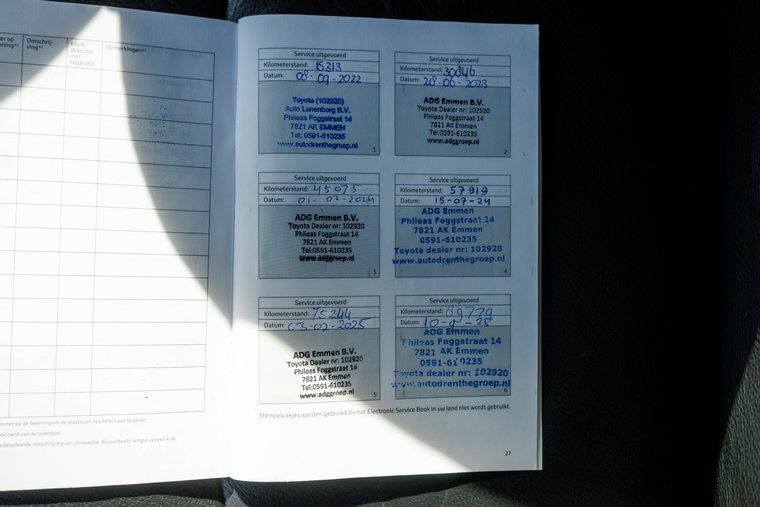 Omschrij-
ving*²
Klant
akkoord
met
reparatie
Opmerkingen*³
Service uitgevoerd
Kilometerstand: 15313
Datum: 08-09-2022
Toyota (102920)
Auto Lunenborg B.V.
Phileas Foggstraat 14
7821 AK EMMEN
Tel: 0591-610235
www.autodrenthegroep.nl
1
Service uitgevoerd
Kilometerstand: 30846
Datum: 28-06-2023
ADG Emmen B.V.
Toyota Dealer nr: 102920
Phileas Foggstraat 14
7821 AK Emmen
Tel:0591-610235
www.adggroep.nl
2
Service uitgevoerd
Kilometerstand: 45075
Datum: 01-02-2024
ADG Emmen B.V.
Toyota Dealer nr: 102920
Phileas Foggstraat 14
7821 AK Emmen
Tel:0591-610235
www.adggroep.nl
3
Service uitgevoerd
Kilometerstand: 57919
Datum: 15-07-24
ADG Emmen
Phileas Foggstraat 14
7821 AK Emmen
0591-610235
Toyota dealer nr: 102920
www.autodrenthegroep.nl
4
Service uitgevoerd
Kilometerstand: 75244
Datum: 03-02-2025
ADG Emmen B.V.
Toyota Dealer nr: 102920
Phileas Foggstraat 14
7821 AK Emmen
Tel:0591-610235
www.adggroep.nl
5
Service uitgevoerd
Kilometerstand: 89779
Datum:
ADG Emmen
Phileas Foggstraat 14
7821 AK Emmen
0591-610235
Toyota dealer nr: 102920
www.autodrenthegroep.nl
6
Stempelvakjes worden gebruikt als het Electronic Service Book in uw land niet wordt gebruikt.
27
op de tekening om de plaats van het defect aan te geven
de hand van de codetabel
omschrijving van de kwestie. Bijvoorbeeld: lengte van een kras